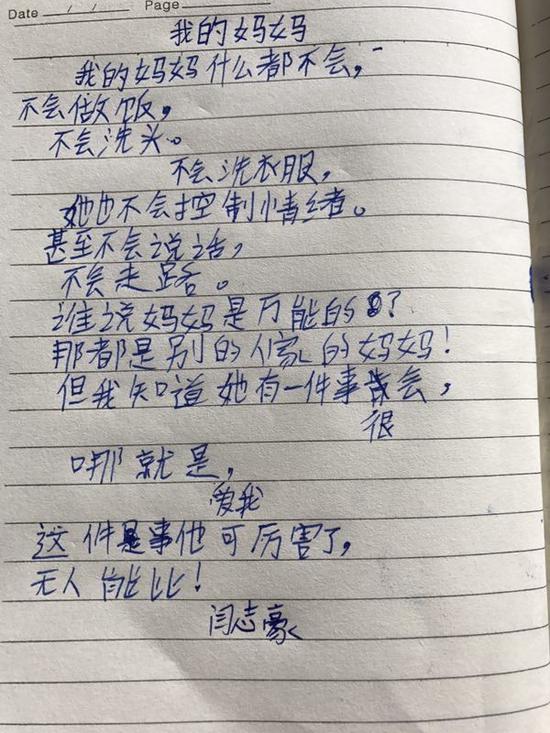 Date / / Page
我的妈妈
我的妈妈什么都不会，
不会做饭，
不会洗头。
不会洗衣服，
她也不会控制情绪。
甚至不会说话，
不会走路。
谁说妈妈是万能的？
那都是别的人家的妈妈！
但我知道她有一件事会，
很
哪就是，
爱我
这件事他可厉害了，
无人能比！
闫志豪